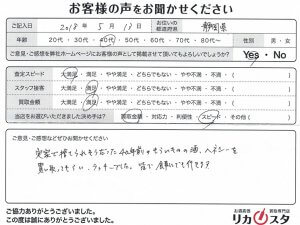 お客様の声をお聞かせください
ご記入日 2018年 5月 13日 お住いの都道府県 静岡県
年齢 20代・30代・40代・50代・60代・70代・80代〜 性別 男・女
ご意見・ご感想を弊社ホームページにお客様の声として掲載させて頂いてもよろしいでしょうか? Yes・No
査定スピード 大満足・満足・やや満足・どちらでもない・やや不満・不満・( )
スタッフ接客 大満足・満足・やや満足・どちらでもない・やや不満・不満・( )
買取金額 大満足・満足・やや満足・どちらでもない・やや不満・不満・( )
当店をお選びいただきました決め手は? 買取金額・対応力・利便性・スピード・その他( )
ご意見・ご感想などぜひお聞かせください。
実家で捨てられそうだった40年前からのもの酒、ヘネシーを
買い取ってもらい、ラッキーでした。皆で食事にでも行きます?
ご協力ありがとうございました。
この度は誠にありがとうございました。
お酒高価買取専門店
リカスタ